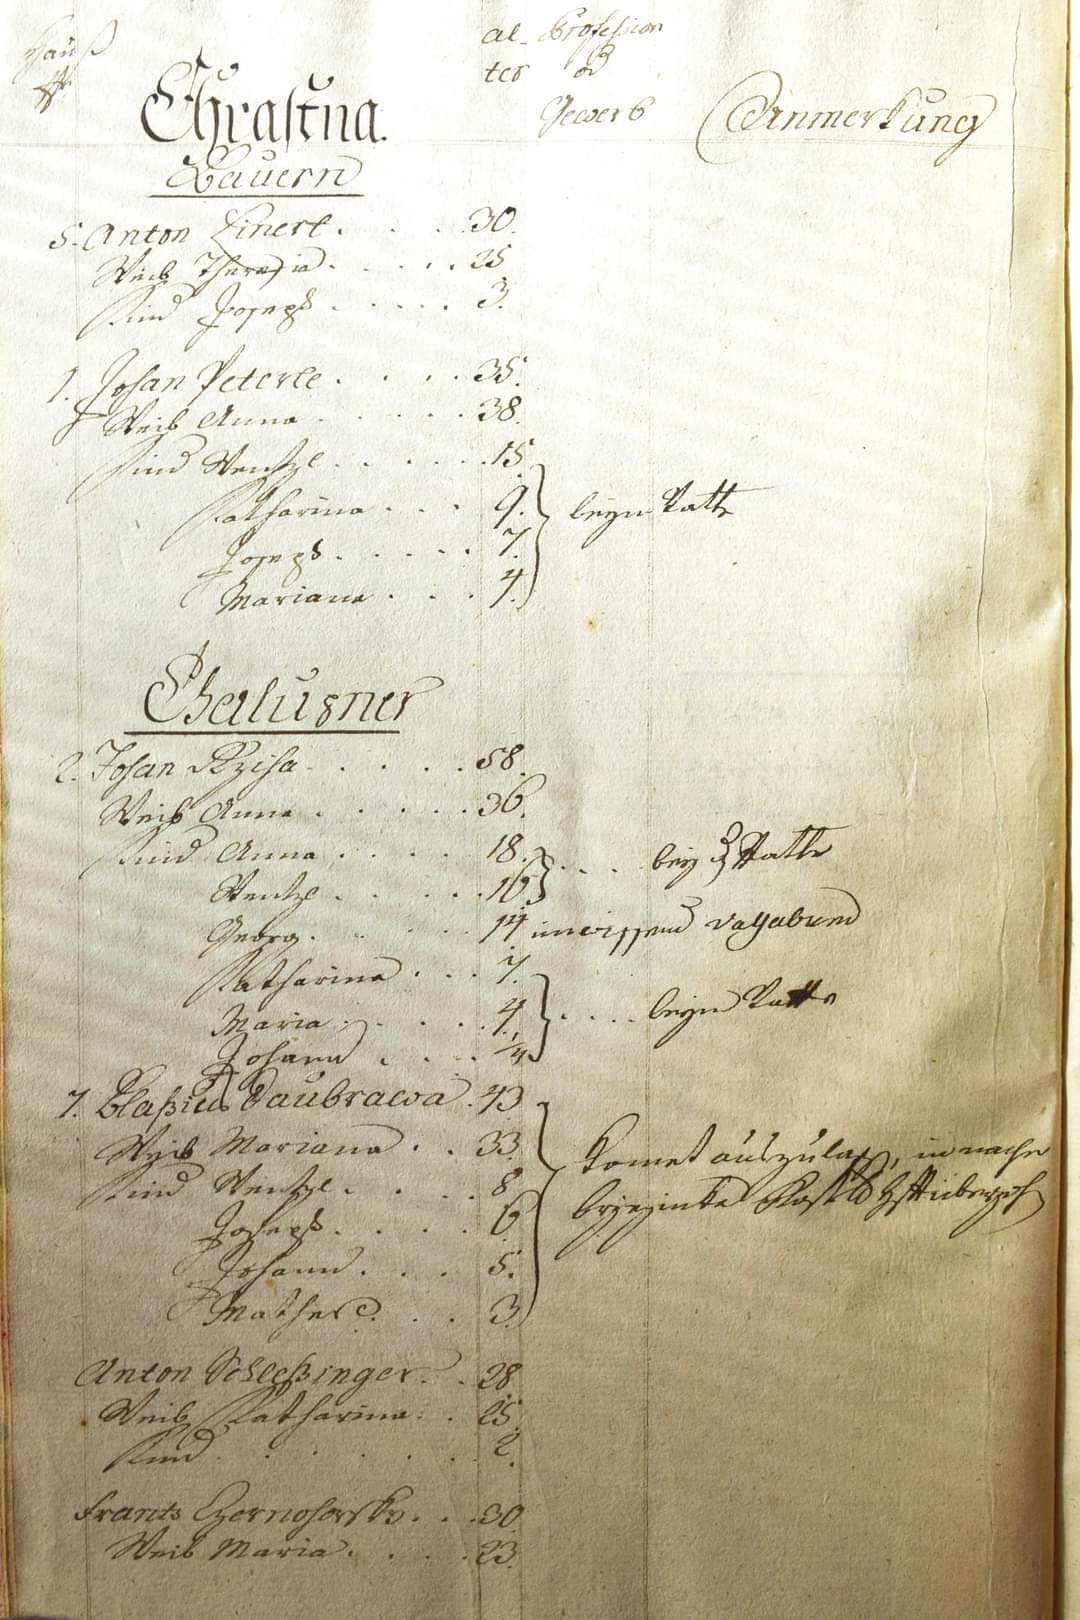 Hauß
al- Profession
ter od
Gewerb
Anmerkung
Chrastna.
Bauern
5. Anton Linert . . . . 30.
Weib Theresia . . . . . 25
Kind Joseph . . . . . 3.
1. Johan Peterle . . . . 35.
Weib Anna . . . . . 38.
Kind Wentzl . . . . . . 15.
Katharina . . . 9. beym Vatter
Joseph . . . . . 7.
Mariana . . . 4.
Chalupner
2. Johan Rziha . . . . . 58.
Weib Anna . . . . . 36.
Kind Anna . . . . 18. . . . . bey Vatter
Wentzl . . . . . 16
Georg . . . . . 14 unwissend vagabund
Katharina . . . 7.
Maria . . . . . 4. . . . . beym Vatter
Johann . . . . 1/4
7. Blaßius Daubrawa . 43
Weib Mariana . . 33.
Kind Wentzl . . . . 8
Joseph . . . . 6
Johann . . . 5.
Mathes . . 3.
Anton Schleßinger . . 28
Weib Katharina . . 25.
Kind . . . . . . . 2.
Frants Czernohorsky . . . 30
Weib Maria . . . . 23.